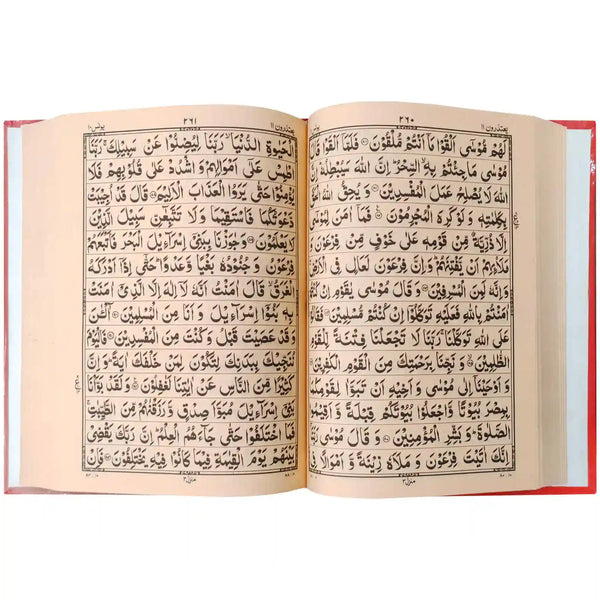 یعتذرون ۱۱
۲۶۰
یونس ۱۰
لَهُمْ مُّوْسٰۤى اَلْقُوْا مَاۤ اَنْتُمْ مُّلْقُوْنَ فَلَمَّاۤ اَلْقَوْا قَالَ
مُوْسٰى مَا جِئْتُمْ بِهِ السِّحْرُ اِنَّ اللّٰهَ سَيُبْطِلُهٗ اِنَّ
اللّٰهَ لَا يُصْلِحُ عَمَلَ الْمُفْسِدِيْنَ وَ يُحِقُّ اللّٰهُ
بِكَلِمٰتِهٖ وَ لَوْ كَرِهَ الْمُجْرِمُوْنَ فَمَاۤ اٰمَنَ لِمُوْسٰۤى
اِلَّا ذُرِّيَّةٌ مِّنْ قَوْمِهٖ عَلٰى خَوْفٍ مِّنْ فِرْعَوْنَ وَ
مَلَا۠ئِهِمْ اَنْ يَّفْتِنَهُمْ وَ اِنَّ فِرْعَوْنَ لَعَالٍ فِى الْاَرْضِ
وَ اِنَّهٗ لَمِنَ الْمُسْرِفِيْنَ وَ قَالَ مُوْسٰى يٰقَوْمِ اِنْ كُنْتُمْ
اٰمَنْتُمْ بِاللّٰهِ فَعَلَيْهِ تَوَكَّلُوْۤا اِنْ كُنْتُمْ مُّسْلِمِيْنَ فَقَالُوْا
عَلَى اللّٰهِ تَوَكَّلْنَا رَبَّنَا لَا تَجْعَلْنَا فِتْنَةً لِّلْقَوْمِ
الظّٰلِمِيْنَ وَ نَجِّنَا بِرَحْمَتِكَ مِنَ الْقَوْمِ الْكٰفِرِيْنَ
وَ اَوْحَيْنَاۤ اِلٰى مُوْسٰى وَ اَخِيْهِ اَنْ تَبَوَّاٰ لِقَوْمِكُمَا
بِمِصْرَ بُيُوْتًا وَّ اجْعَلُوْا بُيُوْتَكُمْ قِبْلَةً وَّ اَقِيْمُوا
الصَّلٰوةَ وَ بَشِّرِ الْمُؤْمِنِيْنَ وَ قَالَ مُوْسٰى رَبَّنَاۤ
اِنَّكَ اٰتَيْتَ فِرْعَوْنَ وَ مَلَاَهٗ زِيْنَةً وَّ اَمْوَالًا فِى
منزل ۳
یعتذرون ۱۱
۲۶۱
یونس ۱۰
الْحَيٰوةِ الدُّنْيَا رَبَّنَا لِيُضِلُّوْا عَنْ سَبِيْلِكَ رَبَّنَا
اطْمِسْ عَلٰۤى اَمْوَالِهِمْ وَ اشْدُدْ عَلٰى قُلُوْبِهِمْ فَلَا
يُؤْمِنُوْا حَتّٰى يَرَوُا الْعَذَابَ الْاَلِيْمَ قَالَ قَدْ اُجِيْبَتْ
دَّعْوَتُكُمَا فَاسْتَقِيْمَا وَ لَا تَتَّبِعٰٓنِّ سَبِيْلَ الَّذِيْنَ
لَا يَعْلَمُوْنَ وَ جٰوَزْنَا بِبَنِيْۤ اِسْرَآءِيْلَ الْبَحْرَ فَاَتْبَعَهُمْ
فِرْعَوْنُ وَ جُنُوْدُهٗ بَغْيًا وَّ عَدْوًا حَتّٰۤى اِذَاۤ اَدْرَكَهُ
الْغَرَقُ قَالَ اٰمَنْتُ اَنَّهٗ لَاۤ اِلٰهَ اِلَّا الَّذِيْۤ اٰمَنَتْ
بِهٖ بَنُوْۤا اِسْرَآءِيْلَ وَ اَنَا مِنَ الْمُسْلِمِيْنَ آٰلْـٰٔنَ
وَ قَدْ عَصَيْتَ قَبْلُ وَ كُنْتَ مِنَ الْمُفْسِدِيْنَ فَالْيَوْمَ
نُنَجِّيْكَ بِبَدَنِكَ لِتَكُوْنَ لِمَنْ خَلْفَكَ اٰيَةً وَ اِنَّ
كَثِيْرًا مِّنَ النَّاسِ عَنْ اٰيٰتِنَا لَغٰفِلُوْنَ وَ لَقَدْ بَوَّاْنَا
بَنِيْۤ اِسْرَآءِيْلَ مُبَوَّاَ صِدْقٍ وَّ رَزَقْنٰهُمْ مِّنَ الطَّيِّبٰتِ
فَمَا اخْتَلَفُوْا حَتّٰى جَآءَهُمُ الْعِلْمُ اِنَّ رَبَّكَ يَقْضِيْ
بَيْنَهُمْ يَوْمَ الْقِيٰمَةِ فِيْمَا كَانُوْا فِيْهِ يَخْتَلِفُوْنَ فَاِنْ
منزل ۳